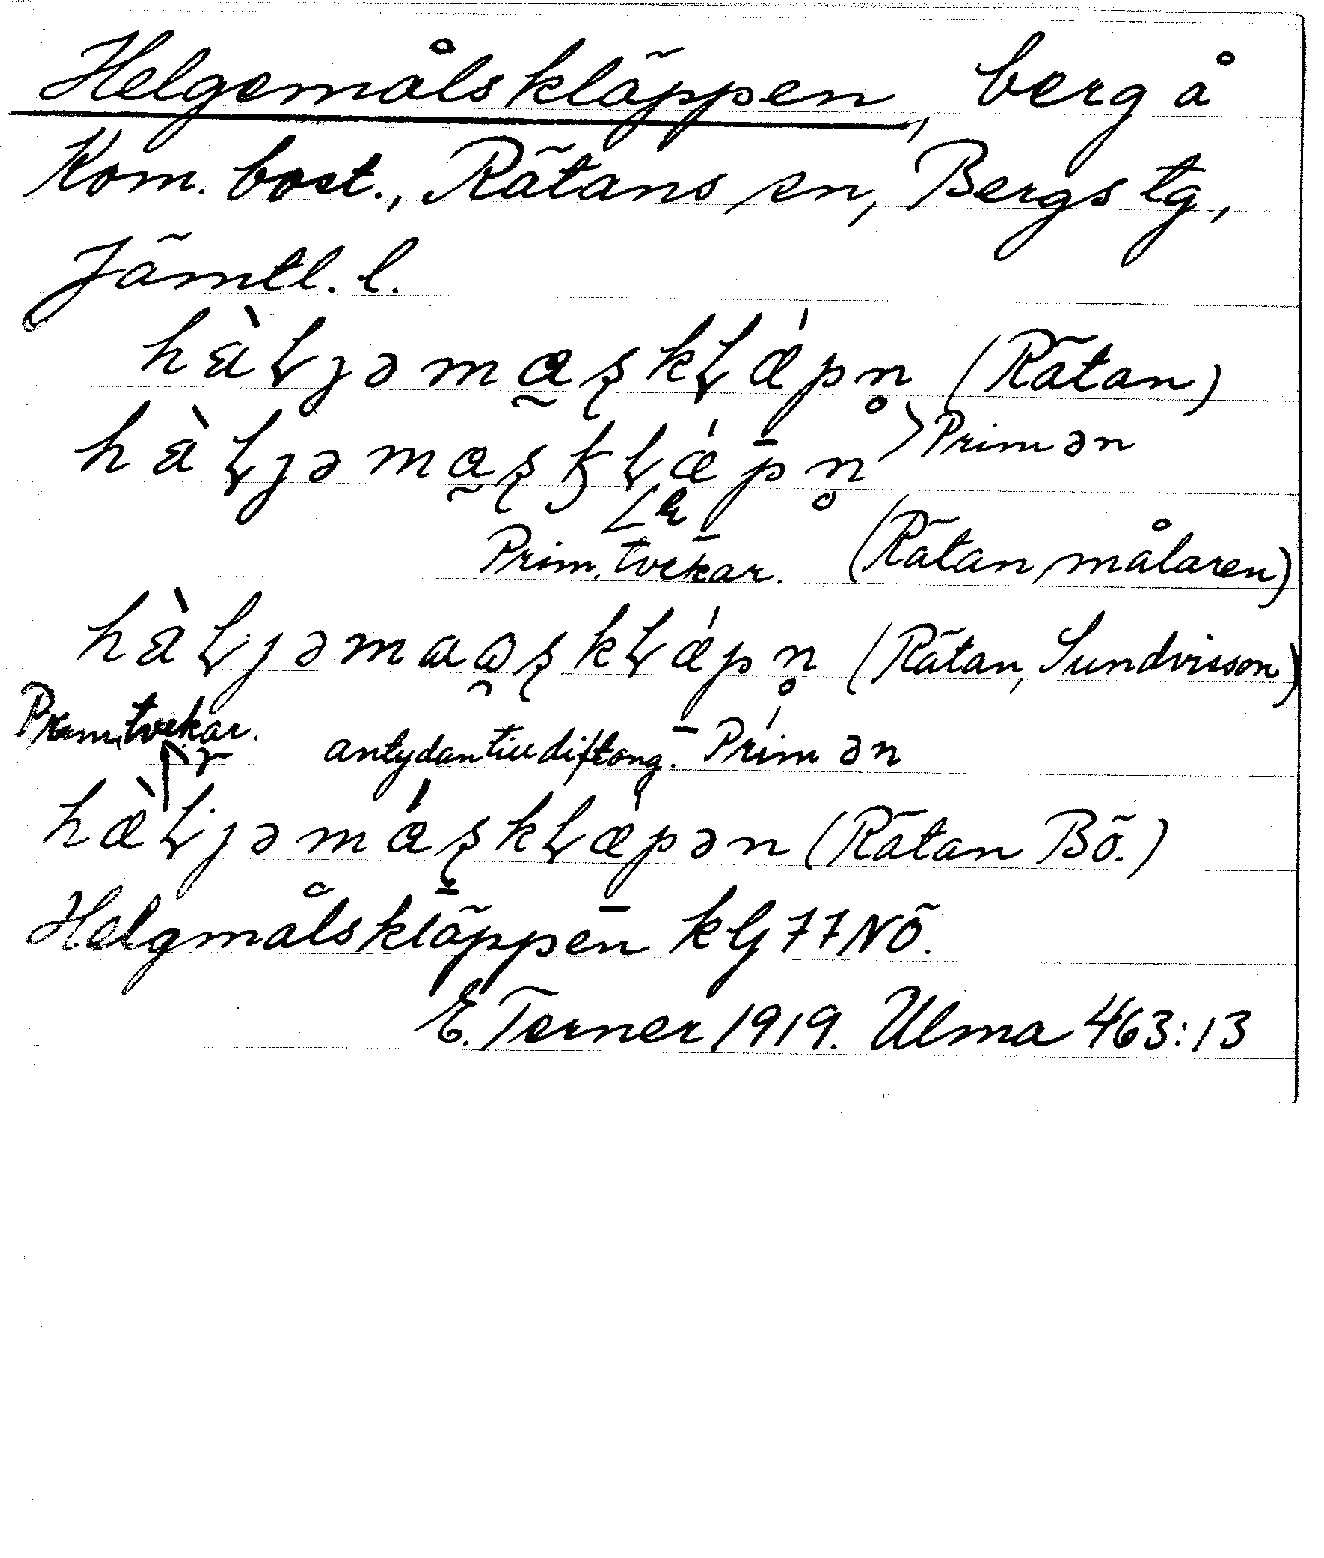 Helgemålskläppen, berg å
Kom. bost., Rätans sn, Bergs tg,
Jämtl. l.
hàɭjəmɑʂkɭǽpn̥ (Rätan)
hàɭjəmɑʂkɭǽpn̥ > Prim ən
Prim. tvekar. (Rätan, målaren)
hàɭjəmɑɑʂkɭǽpn̥ (Rätan, Sundvisson)
Prim. tvekar. antydan till diftong. Prim ən
hæ̀ɭjəmáʂkɭæ̀pən (Rätan Bö.)
Helgmålskläppen kG 77 NÖ.
E. Terner 1919. Ulma 463:13